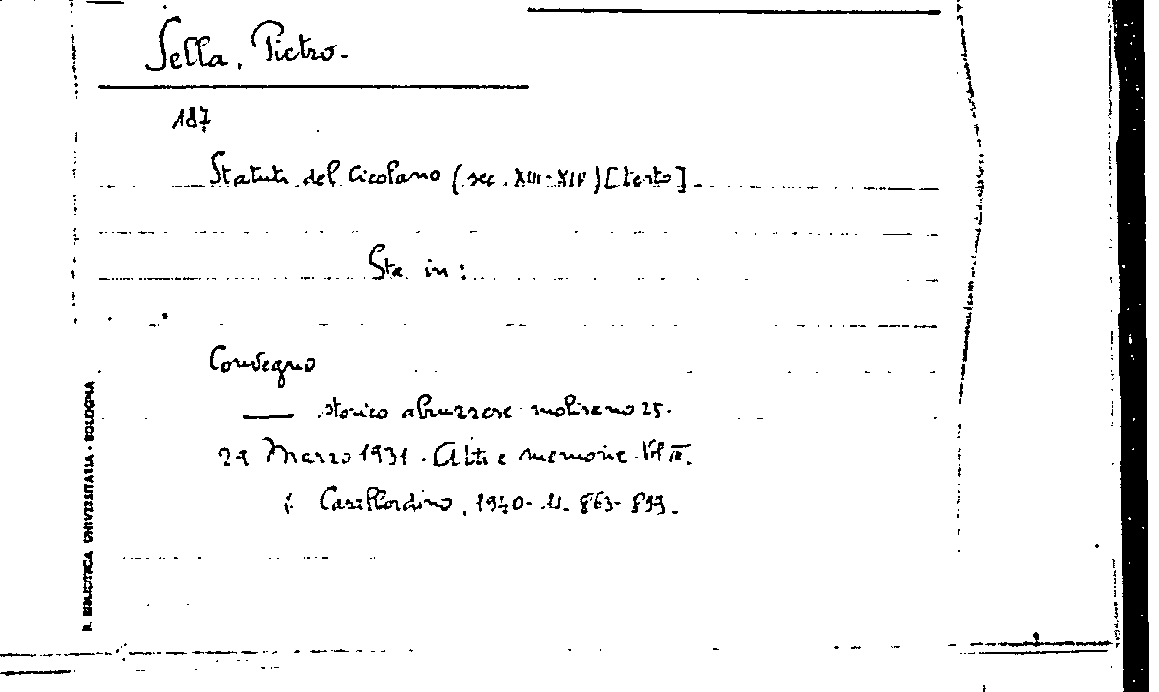 Sella, Pietro.
187
Statuti del Cicolano (sec. XIII-XIV) [testo].
Sta in:
Convegno
—— storico abruzzese molisano 25.
29 Marzo 1931. Atti e memorie. Vol III.
Casalbordino, 1940. 863-899.
R. BIBLIOTECA UNIVERSITARIA - BOLOGNA